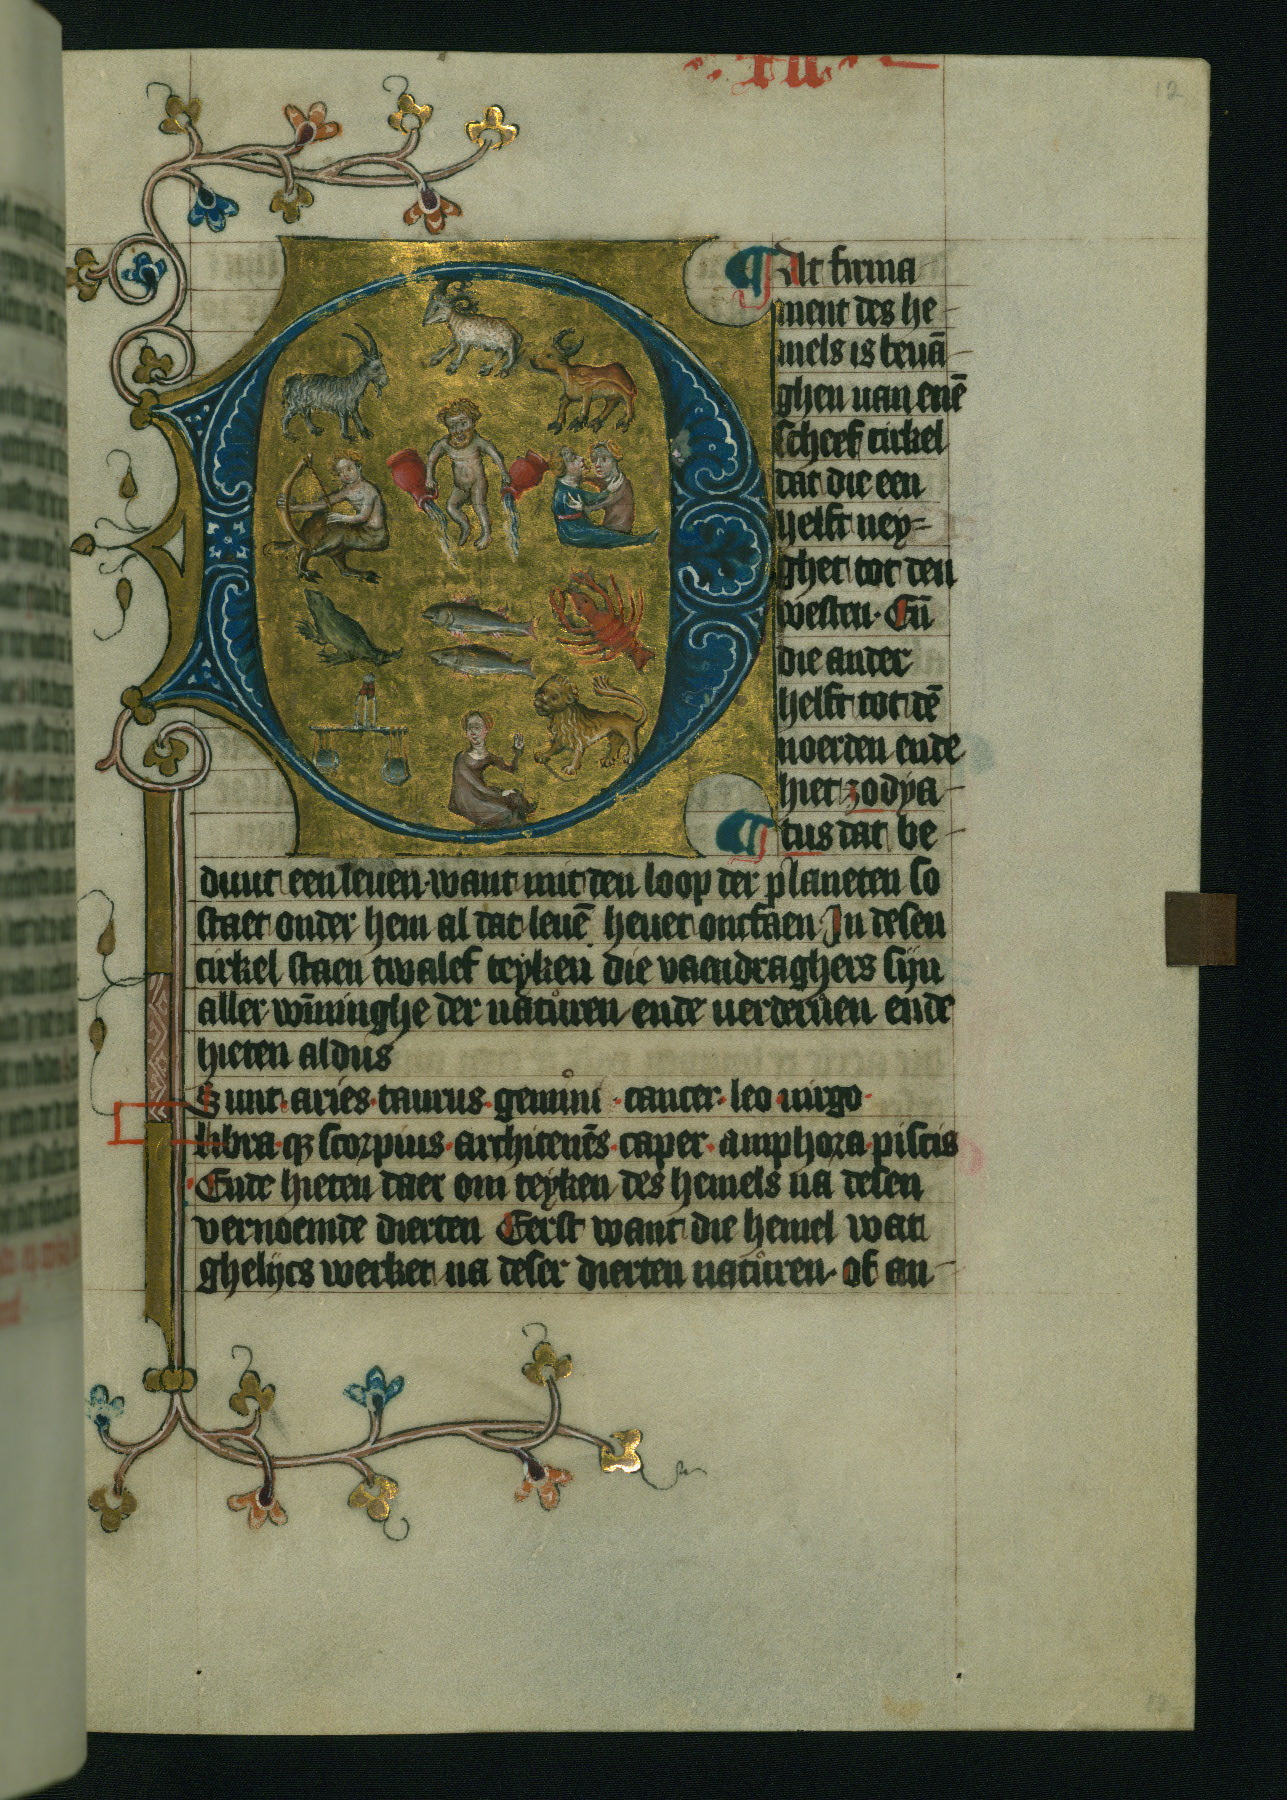 xii
12
Dit firma
ment des he
mels is beuā
ghen uan enē
scheef cirkel
dat die een
helft ney=
ghet tot den
westen. Eñ
die ander
helft tot dē
noerden ende
hiet zodya
cus dat be
duut een leuen. want mit den loop der planeten so
staet onder hem al dat leuē heuet ontfaen In desen
cirkel staen twalef teyken die vaendraghers sijn
aller wīninghe der natůren ende uerderuen ende
hieten aldus
Sunt aries. taurus. gemini. cancer. leo uirgo.
libra. qz scorpius. architenēs. caper. amphora. piscis
Ende hieten daer om teyken des hemels na desen
vernoemde dierten Eerst want die hemel wat
ghelijcs werket na deser dierten natůren. of an